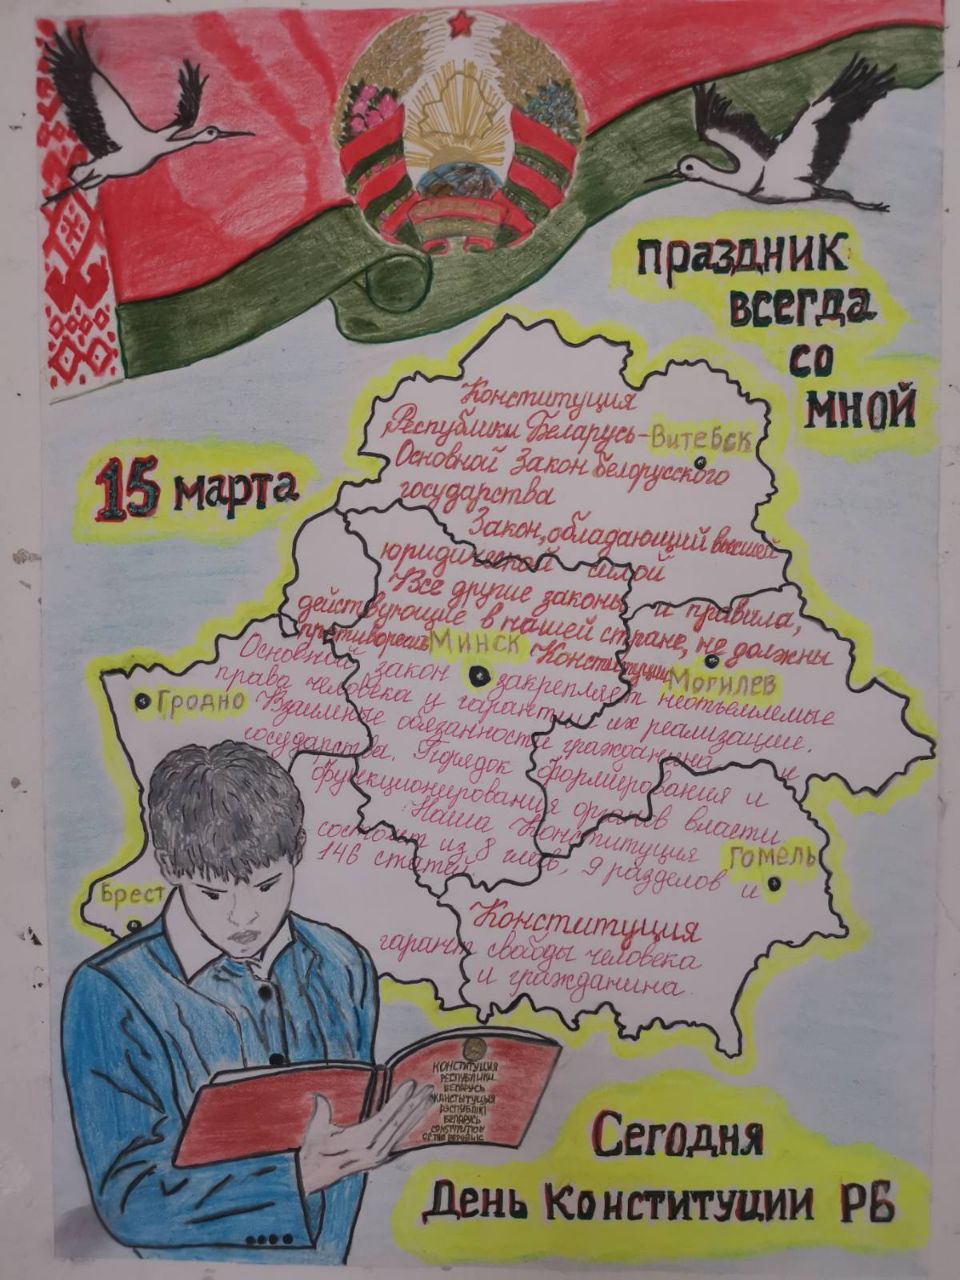 праздник
всегда
со
мной
15 марта
Конституция
Республики Беларусь-
Витебск
Основной Закон белорусского
государства
Закон, обладающий высшей
юридической силой
Все другие законы и правила,
действующие в нашей стране, не должны
Минск
Конституции
Могилев
Основной закон закрепляет неотъемлемые
права человека и гарантии их реализации.
Гродно
Взаимные обязанности гражданина и
государства. Порядок формирования и
функционирования органов власти.
Наша Конституция
состоит из 8 глав, 9 разделов и
146 статей
Гомель
Брест
Конституция
гарант свободы человека
и гражданина.
КОНСТИТУЦИЯ
РЕСПУБЛИКИ
БЕЛАРУСЬ
КАНСТЫТУЦЫЯ
РЭСПУБЛІКІ
БЕЛАРУСЬ
CONSTITUTION
OF THE REPUBLIC
Сегодня
День Конституции РБ